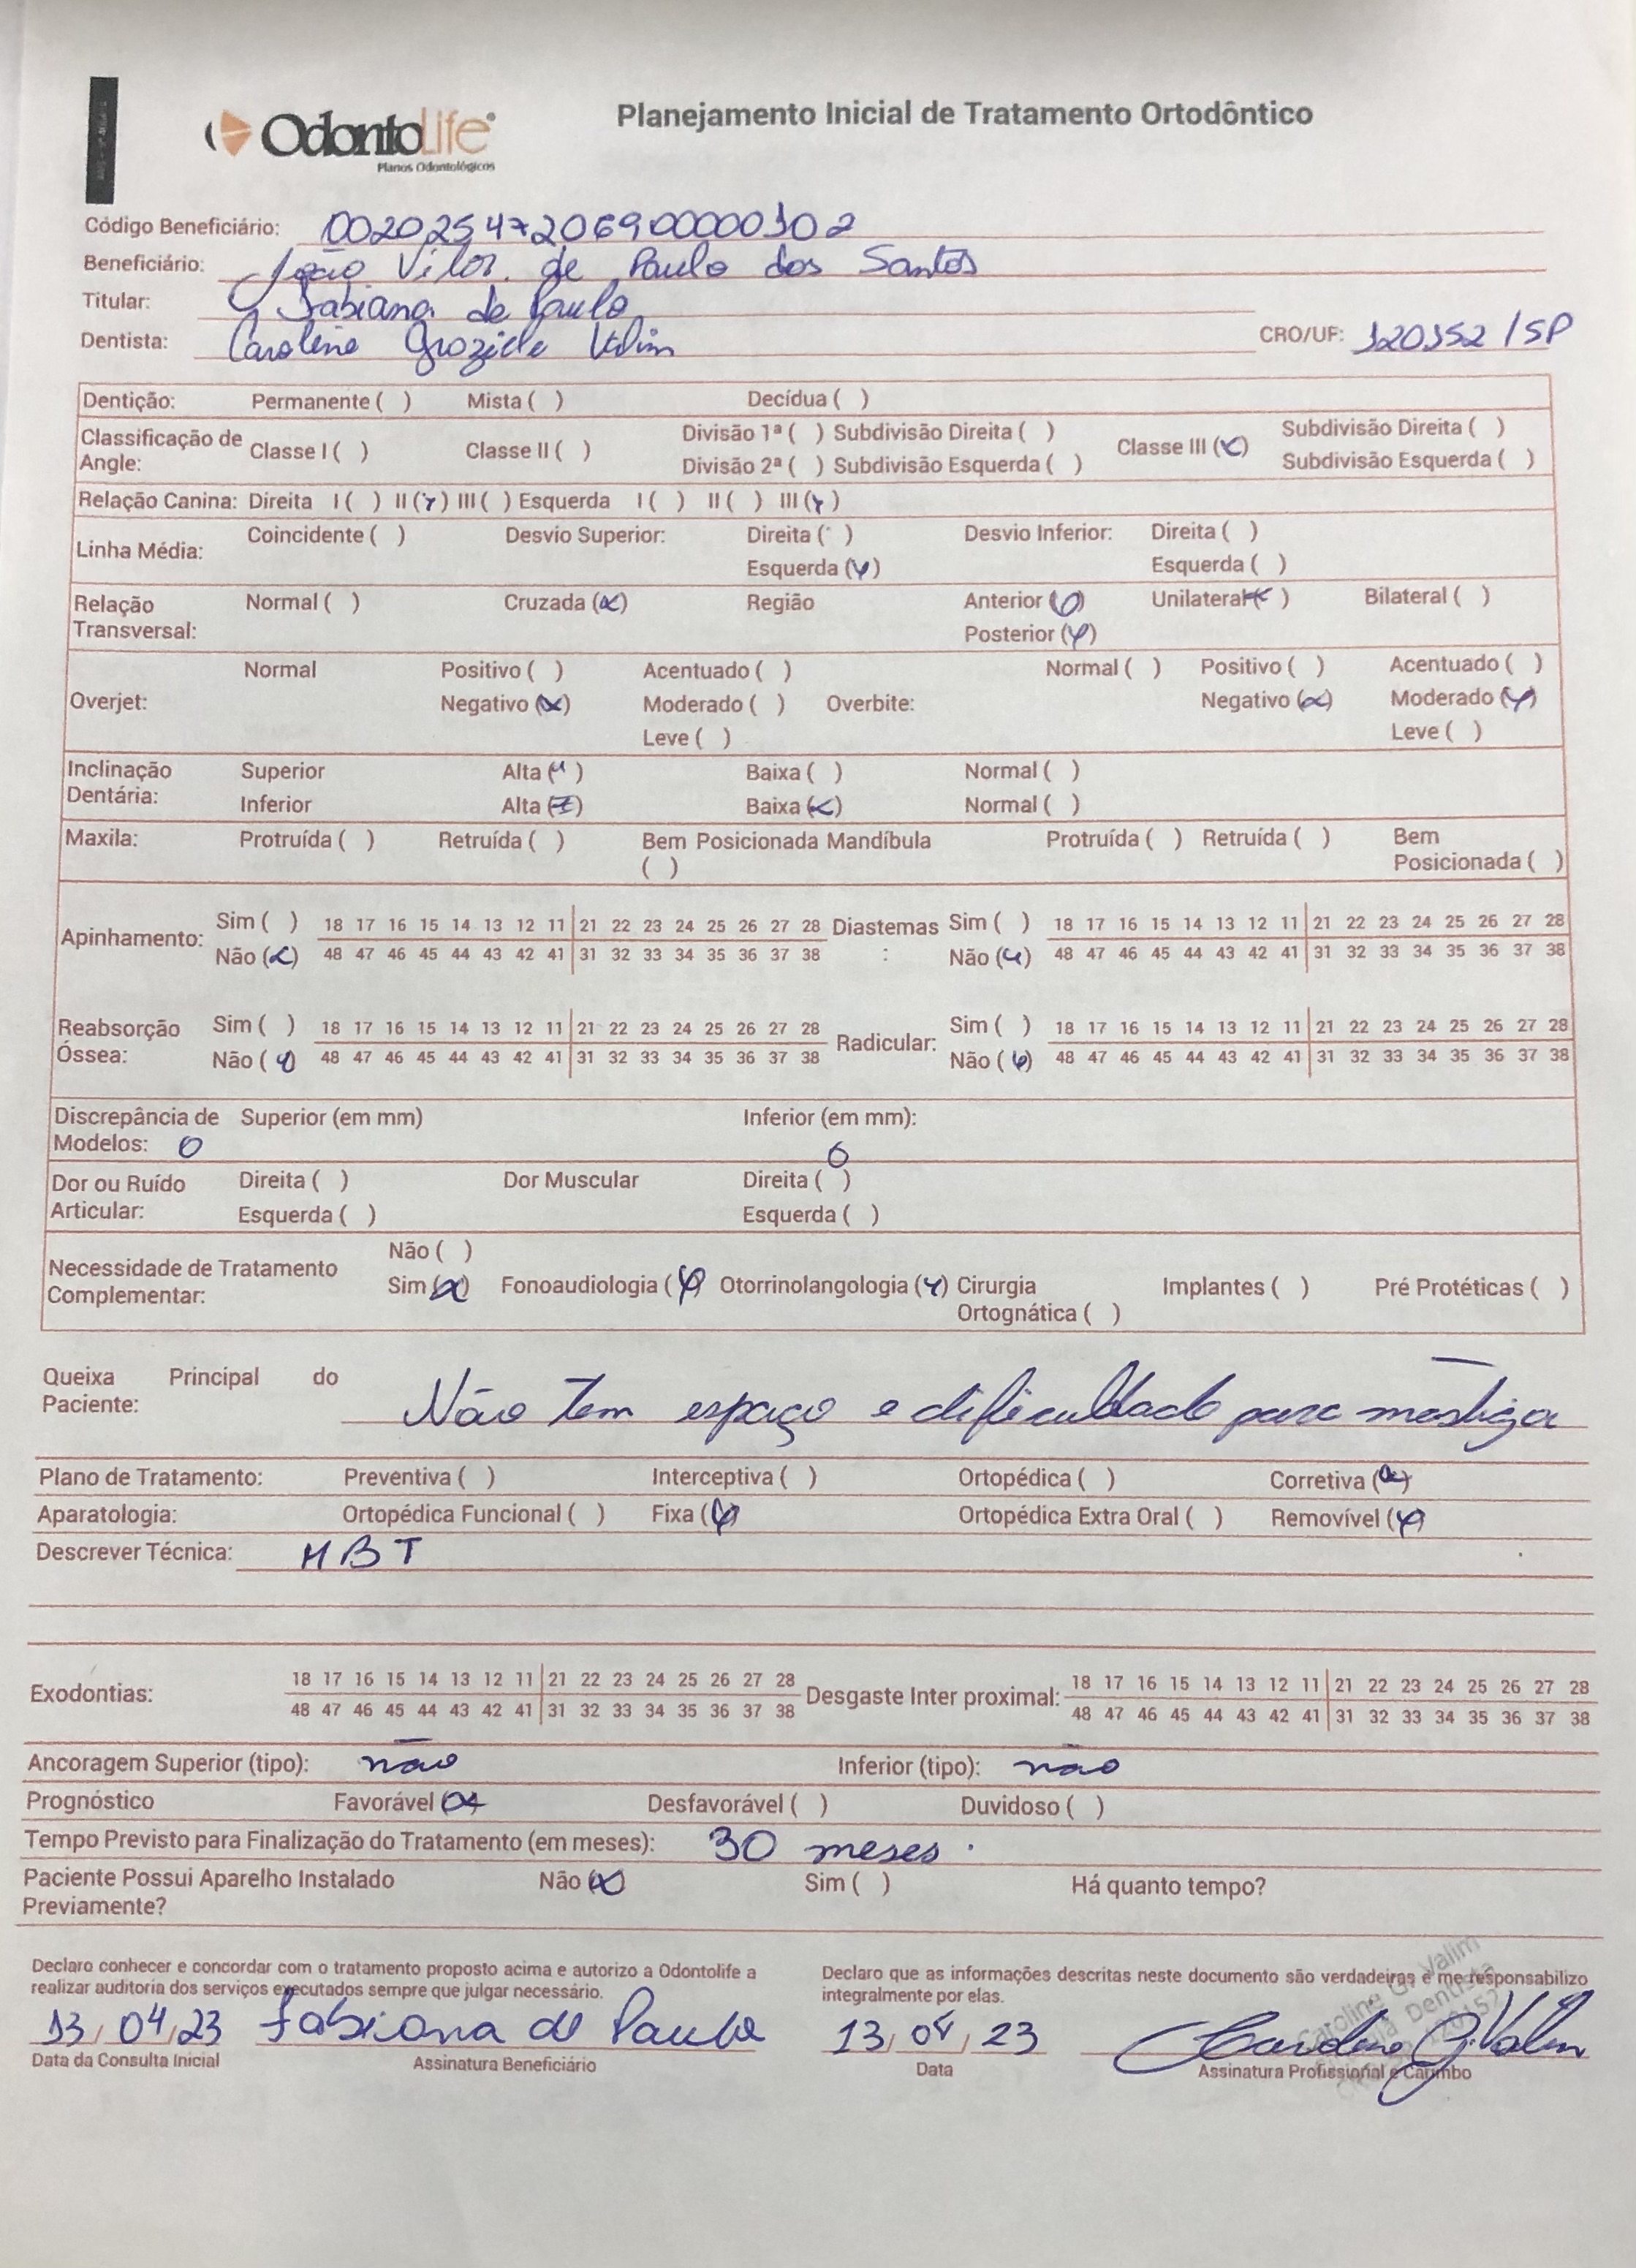 OdontoLife®
Planos Odontológicos
Planejamento Inicial de Tratamento Ortodôntico
Código Beneficiário: 00202547206900000102
Beneficiário: João Vitor de Paulo dos Santos
Titular: Fabiana de Paulo
Dentista: Caroline Graziele Valim CRO/UF: 120152 / SP
Dentição: Permanente ( ) Mista ( ) Decídua ( )
Classificação de Angle: Classe I ( ) Classe II ( ) Divisão 1ª ( ) Subdivisão Direita ( ) Classe III (x) Subdivisão Direita ( )
Divisão 2ª ( ) Subdivisão Esquerda ( ) Subdivisão Esquerda ( )
Relação Canina: Direita I ( ) II (x) III ( ) Esquerda I ( ) II ( ) III (x)
Linha Média: Coincidente ( ) Desvio Superior: Direita ( ) Desvio Inferior: Direita ( )
Esquerda (x) Esquerda ( )
Relação Transversal: Normal ( ) Cruzada (x) Região Anterior ( ) Unilateral (x) Bilateral ( )
Posterior (x)
Overjet: Normal Positivo ( ) Acentuado ( ) Normal ( ) Positivo ( ) Acentuado ( )
Negativo (x) Moderado ( ) Overbite: Negativo (x) Moderado (x)
Leve ( ) Leve ( )
Inclinação Dentária: Superior Alta (x) Baixa ( ) Normal ( )
Inferior Alta ( ) Baixa (x) Normal ( )
Maxila: Protruída ( ) Retruída ( ) Bem Posicionada Mandíbula Protruída ( ) Retruída ( ) Bem
( ) Posicionada ( )
Apinhamento: Sim ( ) 18 17 16 15 14 13 12 11 21 22 23 24 25 26 27 28 Diastemas : Sim ( ) 18 17 16 15 14 13 12 11 21 22 23 24 25 26 27 28
Não (x) 48 47 46 45 44 43 42 41 31 32 33 34 35 36 37 38 Não (x) 48 47 46 45 44 43 42 41 31 32 33 34 35 36 37 38
Reabsorção Óssea: Sim ( ) 18 17 16 15 14 13 12 11 21 22 23 24 25 26 27 28 Radicular: Sim ( ) 18 17 16 15 14 13 12 11 21 22 23 24 25 26 27 28
Não (x) 48 47 46 45 44 43 42 41 31 32 33 34 35 36 37 38 Não (x) 48 47 46 45 44 43 42 41 31 32 33 34 35 36 37 38
Discrepância de Superior (em mm) Inferior (em mm):
Modelos: 0 0
Dor ou Ruído Articular: Direita ( ) Dor Muscular Direita ( )
Esquerda ( ) Esquerda ( )
Necessidade de Tratamento Complementar: Não ( )
Sim (x) Fonoaudiologia (x) Otorrinolangologia (x) Cirurgia Implantes ( ) Pré Protéticas ( )
Ortognática ( )
Queixa Principal do
Paciente: Não tem espaço e dificuldade para mastiga
Plano de Tratamento: Preventiva ( ) Interceptiva ( ) Ortopédica ( ) Corretiva (x)
Aparatologia: Ortopédica Funcional ( ) Fixa (x) Ortopédica Extra Oral ( ) Removível (x)
Descrever Técnica: MBT
Exodontias: 18 17 16 15 14 13 12 11 21 22 23 24 25 26 27 28 Desgaste Inter proximal: 18 17 16 15 14 13 12 11 21 22 23 24 25 26 27 28
48 47 46 45 44 43 42 41 31 32 33 34 35 36 37 38 48 47 46 45 44 43 42 41 31 32 33 34 35 36 37 38
Ancoragem Superior (tipo): não Inferior (tipo): não
Prognóstico Favorável (x) Desfavorável ( ) Duvidoso ( )
Tempo Previsto para Finalização do Tratamento (em meses): 30 meses.
Paciente Possui Aparelho Instalado Não (x) Sim ( ) Há quanto tempo?
Previamente?
Declaro conhecer e concordar com o tratamento proposto acima e autorizo a Odontolife a
realizar auditoria dos serviços executados sempre que julgar necessário.
Declaro que as informações descritas neste documento são verdadeiras e me responsabilizo
integralmente por elas.
13/04/23 Fabiana de Paula 13/04/23 Caroline G. Valim
Data da Consulta Inicial Assinatura Beneficiário Data Assinatura Profissional e Carimbo
Caroline G. Valim
Dentista
120152